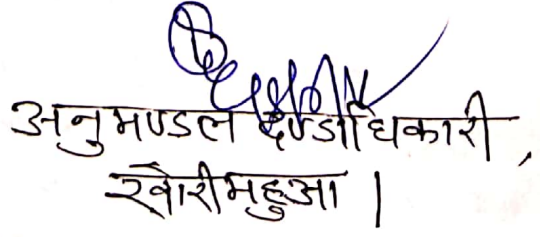 अनुमण्डल दण्डाधिकारी,
खोरीमहुआ।